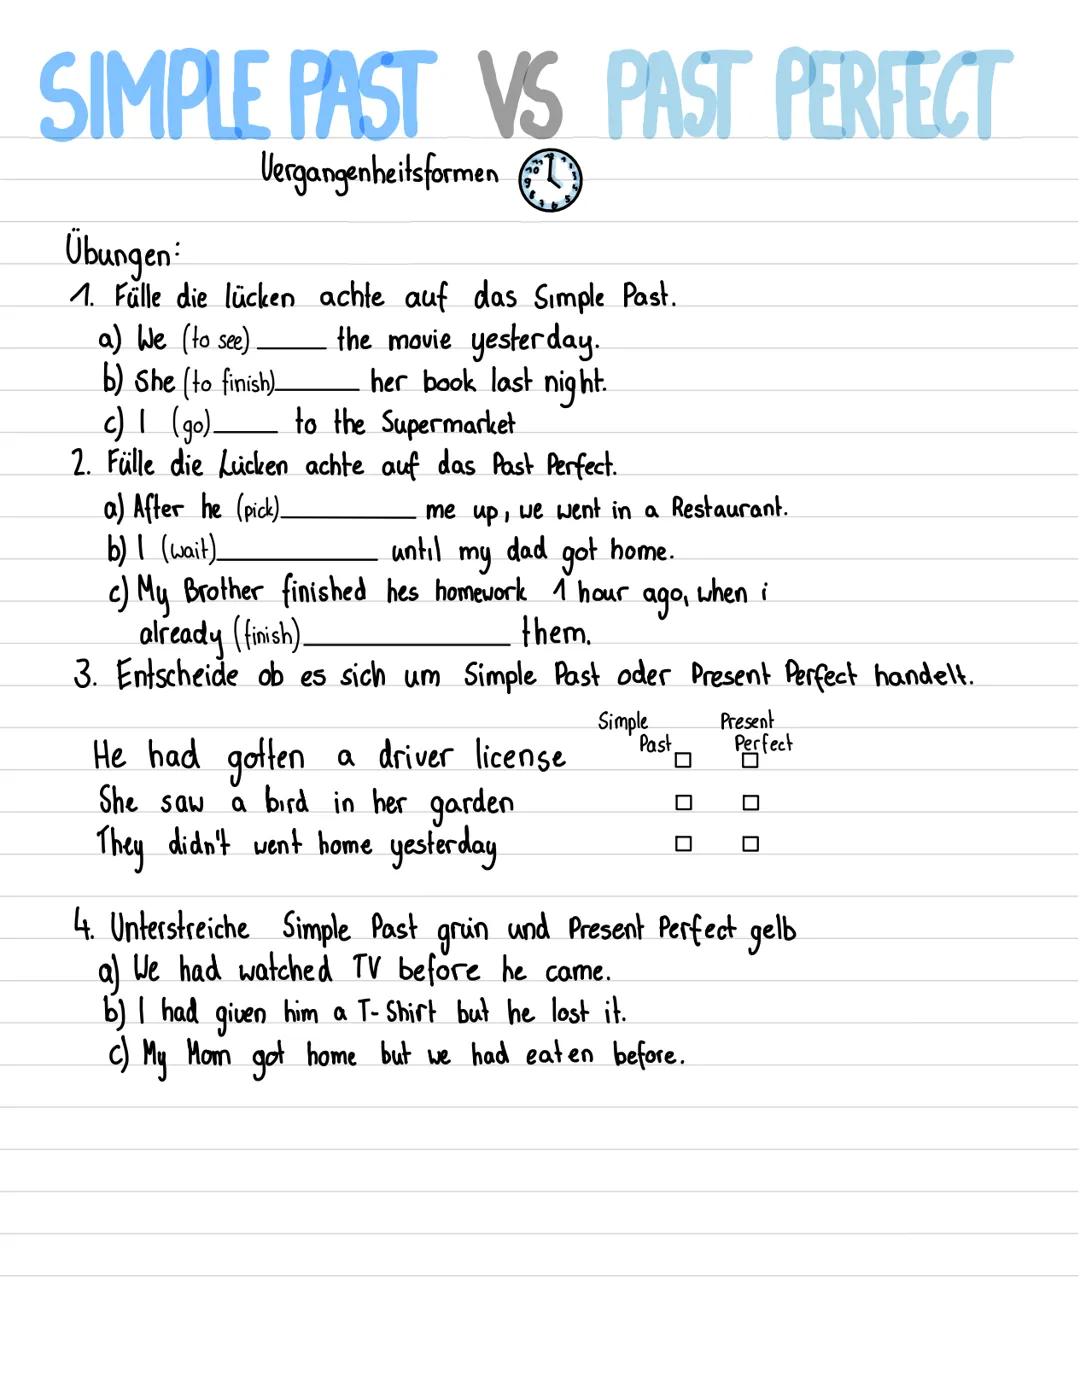 SIMPLE PAST VS PAST PERFECT
Vergangenheitsformen
Übungen:
1. Fülle die lücken achte auf das Simple Past.
a) We (to see) _____ the movie yesterday.
b) She (to finish)______ her book last night.
c) I (go)_____ to the Supermarket
2. Fülle die Lücken achte auf das Past Perfect.
a) After he (pick)__________ me up, we went in a Restaurant.
b) I (wait)____________ until my dad got home.
c) My Brother finished hes homework 1 hour ago, when i
already (finish)_______________ them.
3. Entscheide ob es sich um Simple Past oder Present Perfect handelt.
Simple Present
Past Perfect
He had gotten a driver license □ □
She saw a bird in her garden □ □
They didn't went home yesterday □ □
4. Unterstreiche Simple Past grün und Present Perfect gelb
a) We had watched TV before he came.
b) I had given him a T-Shirt but he lost it.
c) My Mom got home but we had eaten before.